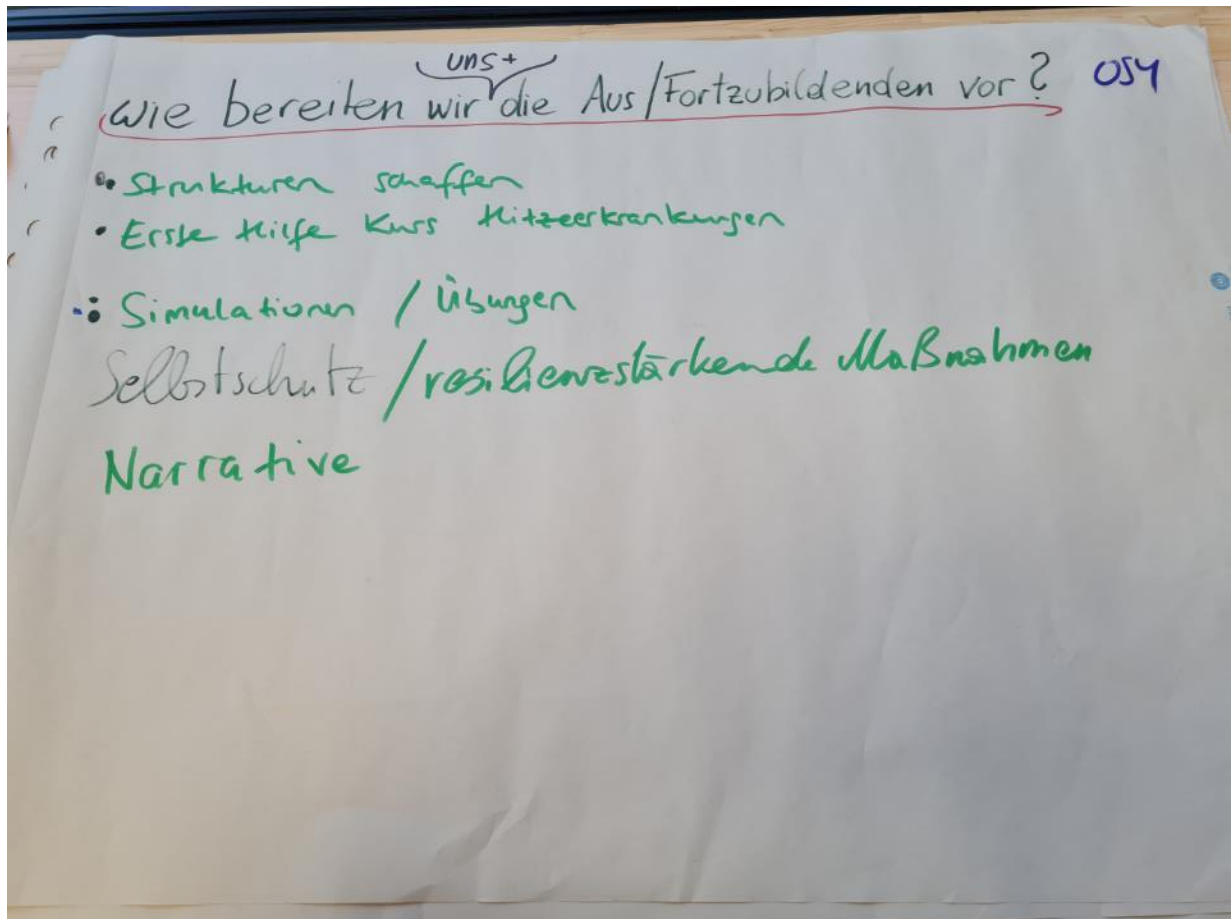 uns +
Wie bereiten wir die Aus/Fortzubildenden vor? OS4
• Strukturen schaffen
• Erste Hilfe Kurs Hitzeerkrankungen
• Simulationen / Übungen
Selbstschutz / resilienzstärkende Maßnahmen
Narrative